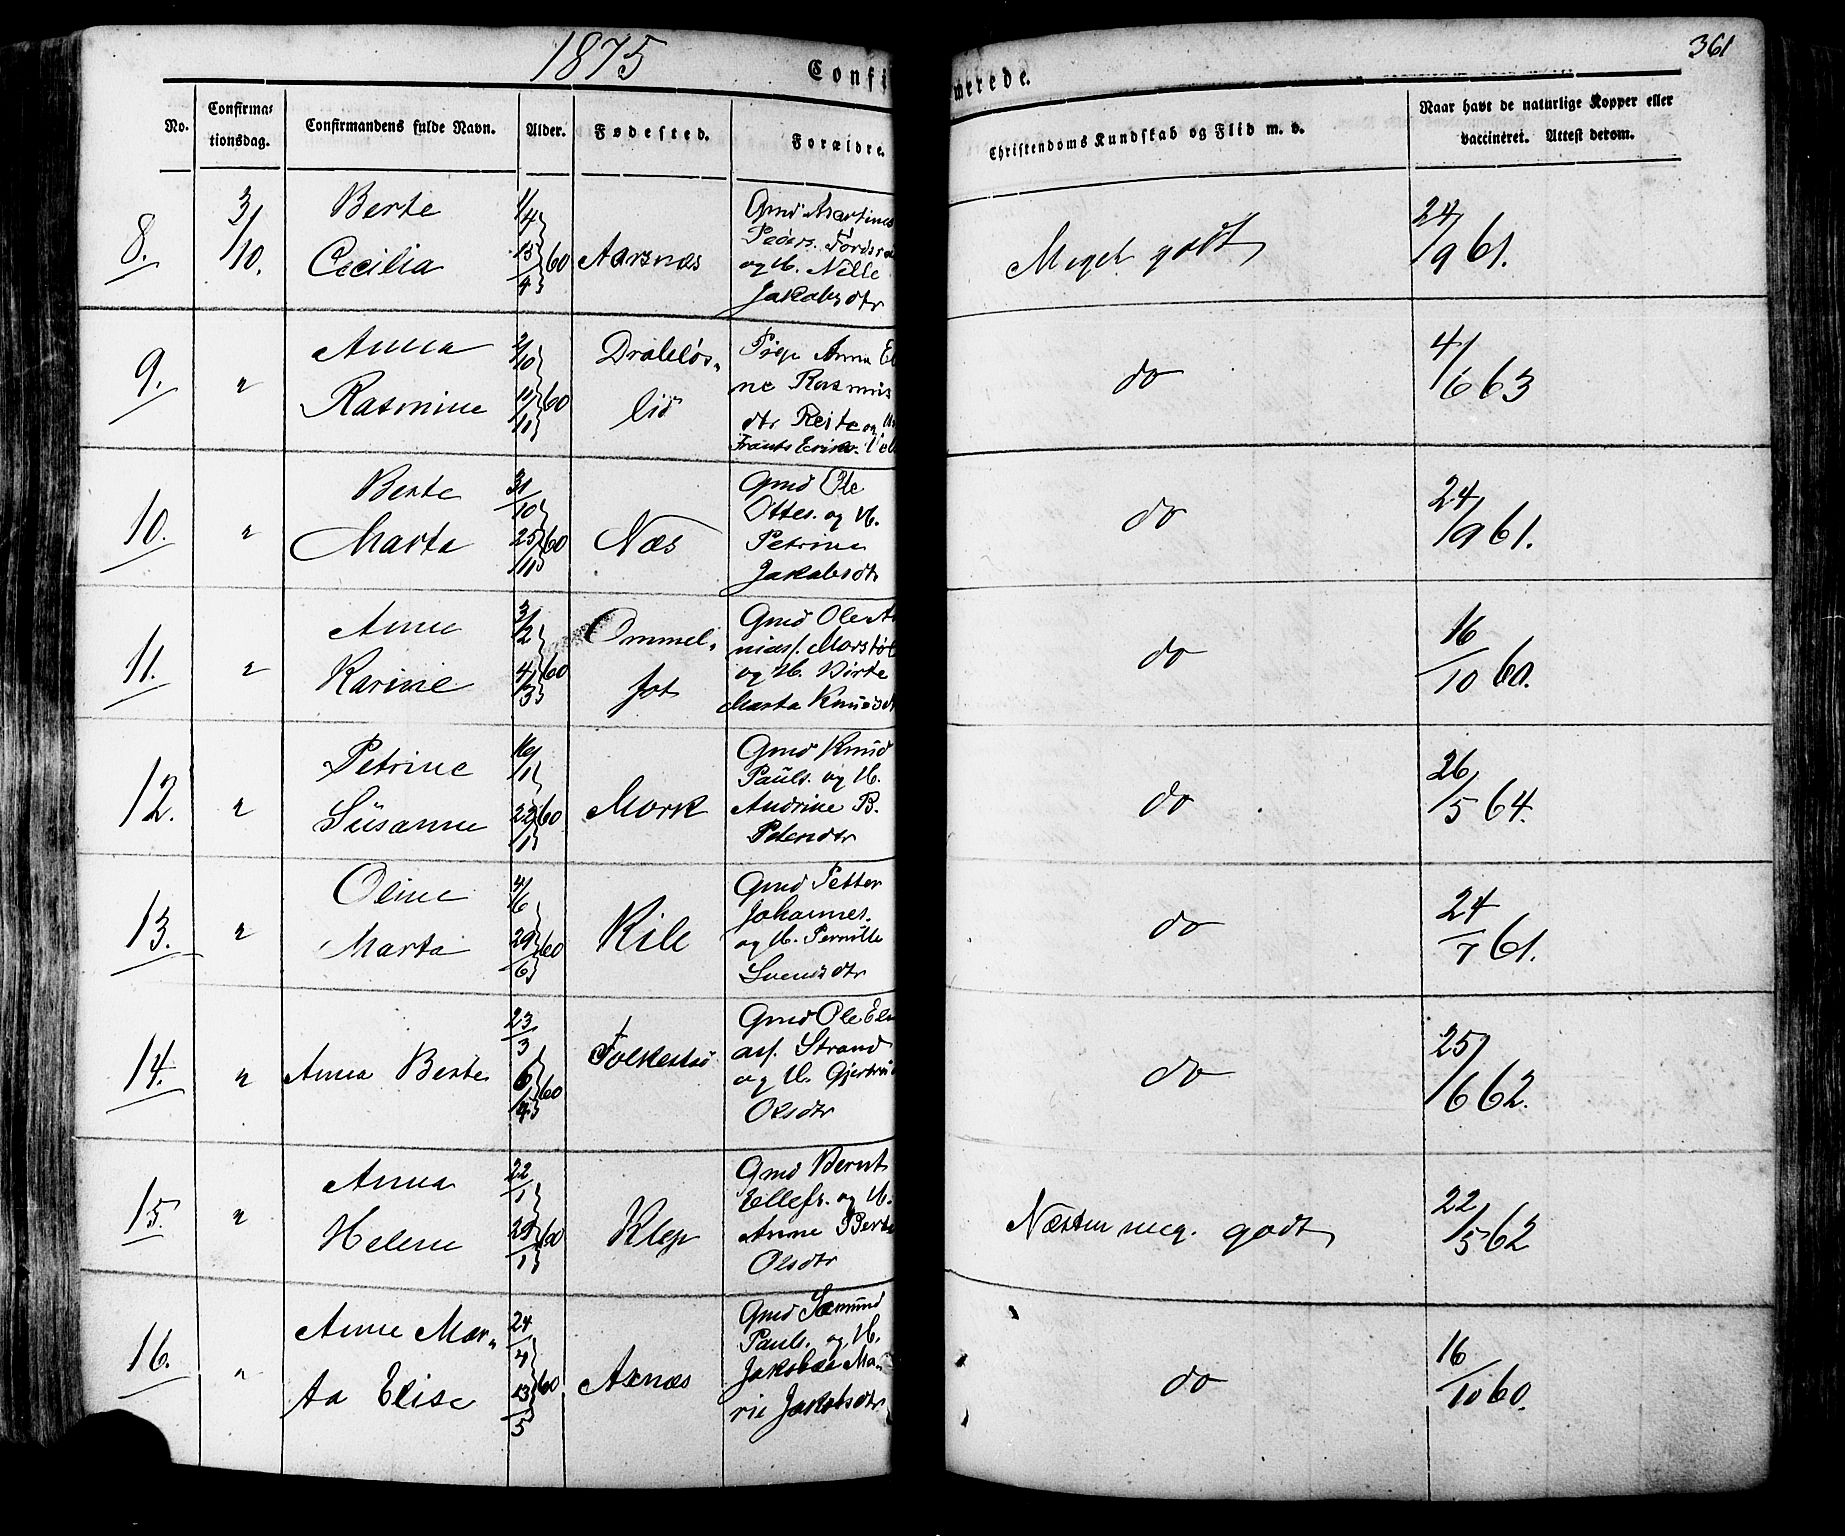 1875
Confirmerede.
361
No.
Confirma-
tionsdag.
Confirmandens fulde Navn.
Alder.
Fødested.
Forældre.
Christendoms Kundskab og Flid m. v.
Naar havt de naturlige Kopper eller
vaccineret. Attest derom.
8.
3/10.
Berte
Cecilia
1/4
13/4 60
Aarsnæs
Gmd Martinus
Peders.
og H. Nelle
Jakobsdtr
Meget godt
24/9 61.
9.
"
Anna
Rasmine
2/10
11/11 60
lid
Pige Anna
ne Rasmus
dtr Reite og
Frants Eriks.
do
4/6 63
10.
"
Berte
Marta
31/10
25/11 60
Næs
Gmd Ole
Ottes. og H.
Petrine
Jakobsdtr
do
24/9 61.
11.
"
Anne
Karine
3/2
4/3 60
Ommel-
fot
Gmd Ole A
nias. Morstøl
og H. Birte
Marta Knudsdt
do
16/10 60.
12.
"
Petrine
Susanne
16/11
22/11 60
Mork
Gmd Knud
Pauls. og H.
Andrine B.
Petersdtr
do
26/5 64.
13.
"
Oline
Marta
4/6
29/6 60
Kile
Gmd Petter
Johannes.
og H. Pernille
Svendsdtr
do
24/7 61.
14.
"
Anna Berte
23/3
6/4 60
Folkestad
Gmd Ole Eli
as. Strand
og H. Gjertrud
Olsdtr
do
25/6 62.
15.
"
Anna
Helene
22/1
29/1 60
Klep
Gmd Bernt
Ellefs. og H.
Anne Berte
Olsdtr
Næsten meg. godt
22/5 62
16.
"
Anne Mar-
ta Elise
24/4
13/5 60
Asnæs
Gmd Sæmund
Pauls. og H.
Jakobea Ma-
rie Jakobsdtr
do
16/10 60.